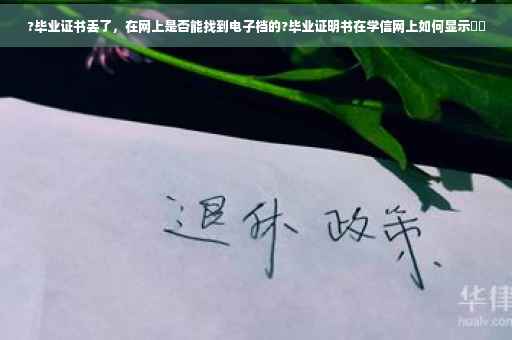 ?毕业证书丢了，在网上是否能找到电子档的?毕业证明书在学信网上如何显示
退休 政策
华律
hualv.com